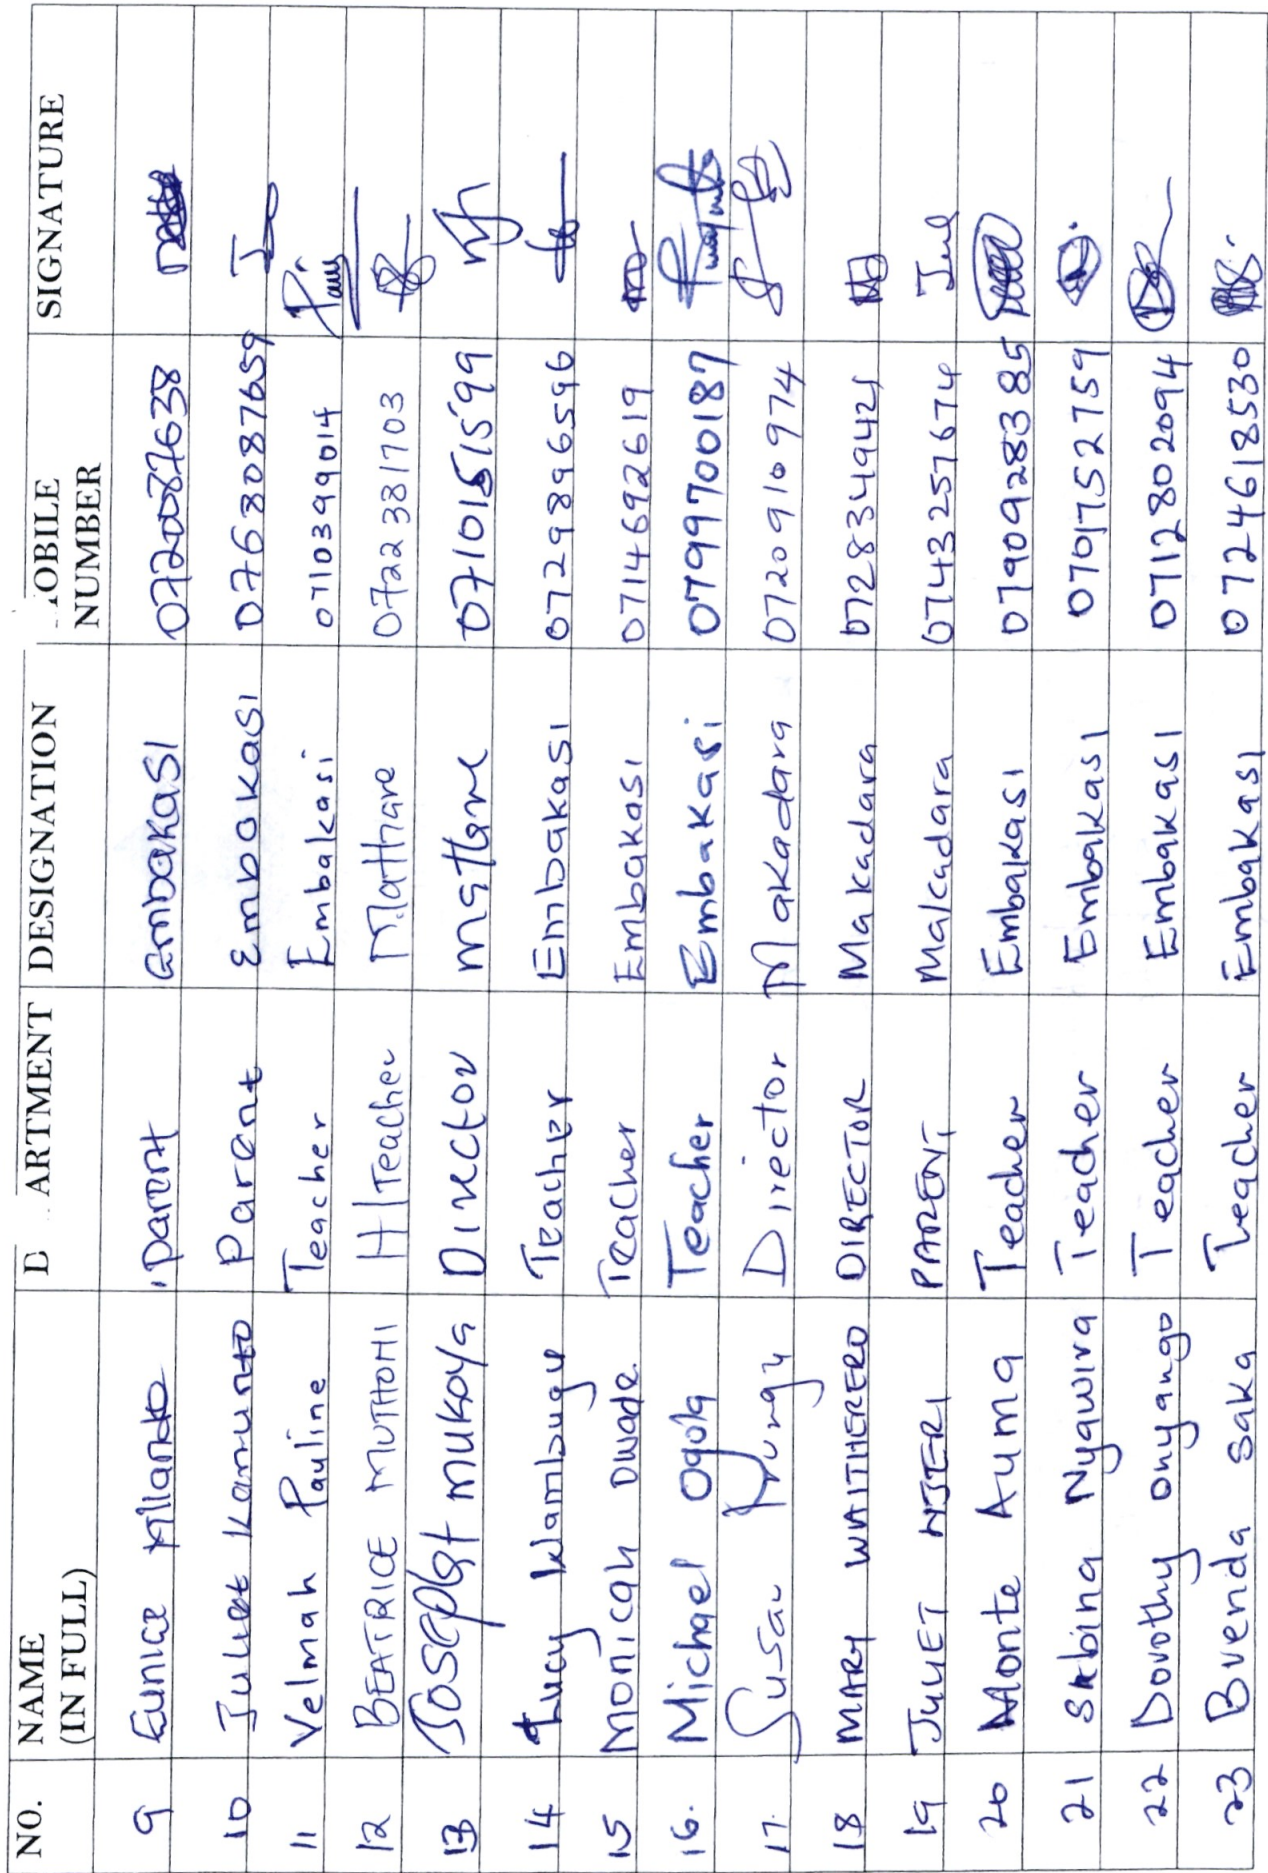 NO. NAME (IN FULL) D ARTMENT DESIGNATION OBILE NUMBER SIGNATURE
9 Eunice parent Embakasi 0720087638
10 Juliet Kamunto Parent Embakasi 0763087659
11 Velmah Pauline Teacher Embakasi 0710399014
12 BEATRICE MUTHONI H/Teacher Mathare 0722381703
13 Joseph mukoya Director mathare 0710151599
14 Lucy Wambugu Teacher Embakasi 0729896596
15 Monicah Owade Teacher Embakasi 0714692619
16. Michael Ogola Teacher Embakasi 0799700187
17. Susan Director Makadara 0720910974
18 MARY WAITHERERO DIRECTOR Makadara 072834942
19 JULIET NJERI PARENT Makadara 0743257674
20 Monte Auma Teacher Embakasi 0790928385
21 Sabina Nyawira Teacher Embakasi 0701752759
22 Dorothy Onyango Teacher Embakasi 0712802094
23 Brenda Saka Teacher Embakasi 0724618530